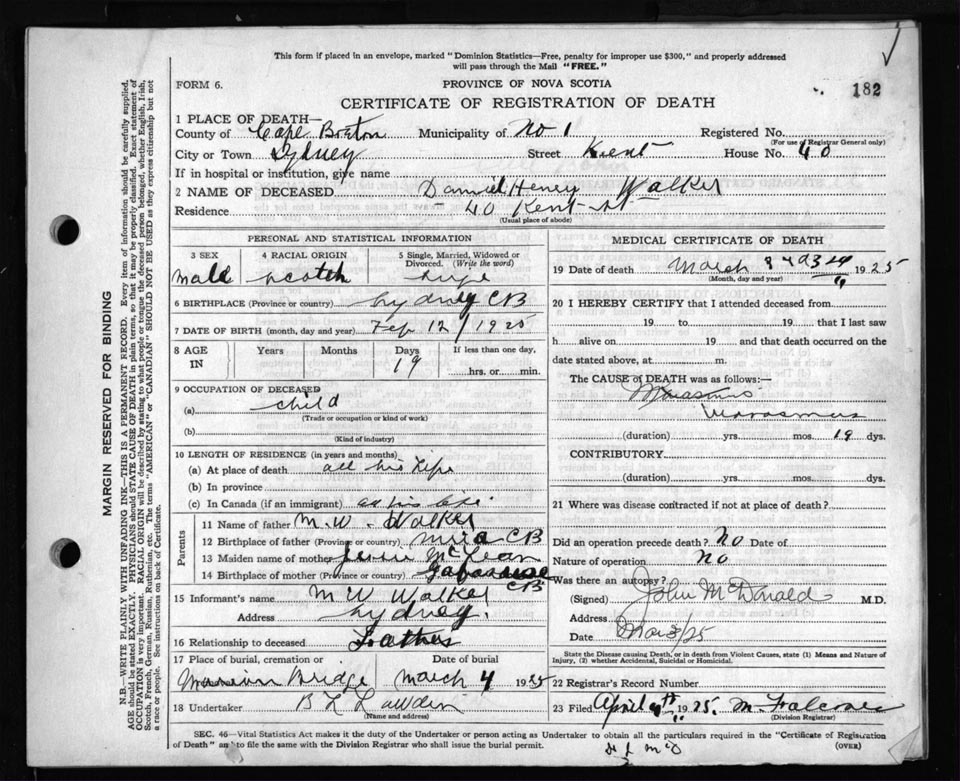 This form if placed in an envelope, marked "Dominion Statistics—Free, penalty for improper use $300," and properly addressed
will pass through the Mail "FREE."
FORM 6.
PROVINCE OF NOVA SCOTIA
182
CERTIFICATE OF REGISTRATION OF DEATH
1 PLACE OF DEATH—
County of Cape Breton Municipality of No 1 Registered No.
(For use of Registrar General only)
City or Town Sydney Street Kent House No. 40
If in hospital or institution, give name
2 NAME OF DECEASED Daniel Henry Walker
Residence 40 Kent St
(Usual place of abode)
PERSONAL AND STATISTICAL INFORMATION
3 SEX 4 RACIAL ORIGIN 5 Single, Married, Widowed or Divorced. (Write the word)
male scotch
6 BIRTHPLACE (Province or country) Sydney CB
7 DATE OF BIRTH (month, day and year) Feb 12/1925
8 AGE IN Years Months Days If less than one day,
19 hrs. or min.
9 OCCUPATION OF DECEASED
(a) child
(Trade or occupation or kind of work)
(b)
(Kind of industry)
10 LENGTH OF RESIDENCE (in years and months)
(a) At place of death all his Life
(b) In province
(c) In Canada (if an immigrant)
Parents
11 Name of father M. W. Walker
12 Birthplace of father (Province or country) Mira CB
13 Maiden name of mother Jessie McLean
14 Birthplace of mother (Province or country) CB
15 Informant's name M W Walker
Address Sydney
16 Relationship to deceased Father
17 Place of burial, cremation or Date of burial
Marion Bridge March 4 1925
18 Undertaker
(Name and address)
MEDICAL CERTIFICATE OF DEATH
19 Date of death March 1925
(Month, day and year)
20 I HEREBY CERTIFY that I attended deceased from
19 to 19 that I last saw
h alive on 19 and that death occurred on the
date stated above, at m.
The CAUSE of DEATH was as follows:—
Marasmus
(duration) yrs. mos. 19 dys.
CONTRIBUTORY
(duration) yrs. mos. dys.
21 Where was disease contracted if not at place of death?
Did an operation precede death? No Date of
Nature of operation No
Was there an autopsy?
(Signed) John McDonald M.D.
Address
Date Mar 3/25
State the Disease causing Death, or in death from Violent Causes, state (1) Means and Nature of
Injury, (2) whether Accidental, Suicidal or Homicidal.
22 Registrar's Record Number
23 Filed April 1925. M. Falconer
(Division Registrar)
SEC. 46—Vital Statistics Act makes it the duty of the Undertaker or person acting as Undertaker to obtain all the particulars required in the "Certificate of Registration
of Death" and to file the same with the Division Registrar who shall issue the burial permit.
(OVER)
MARGIN RESERVED FOR BINDING
N.B.—WRITE PLAINLY WITH UNFADING INK—THIS IS A PERMANENT RECORD. Every item of information should be carefully supplied.
AGE should be stated EXACTLY. PHYSICIANS should STATE CAUSE OF DEATH in plain terms, so that it may be properly classified. Exact statement of
OCCUPATION is very important. RACIAL ORIGIN will be described by stating to what people or tongue the deceased person belonged, whether English, Irish,
Scotch, French, German, Russian, Ruthenian, etc. The terms "AMERICAN" or "CANADIAN" SHOULD NOT BE USED as they express citizenship but not
a race or people. See instructions on back of Certificate.